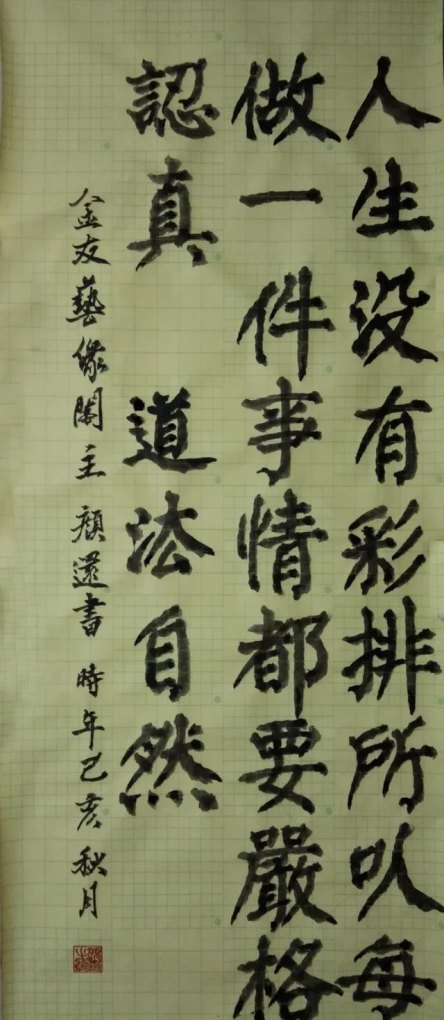 人生没有彩排所以每
做一件事情都要嚴格
認真 道法自然
金友藝緣閣主 顏還書 時年己亥秋月